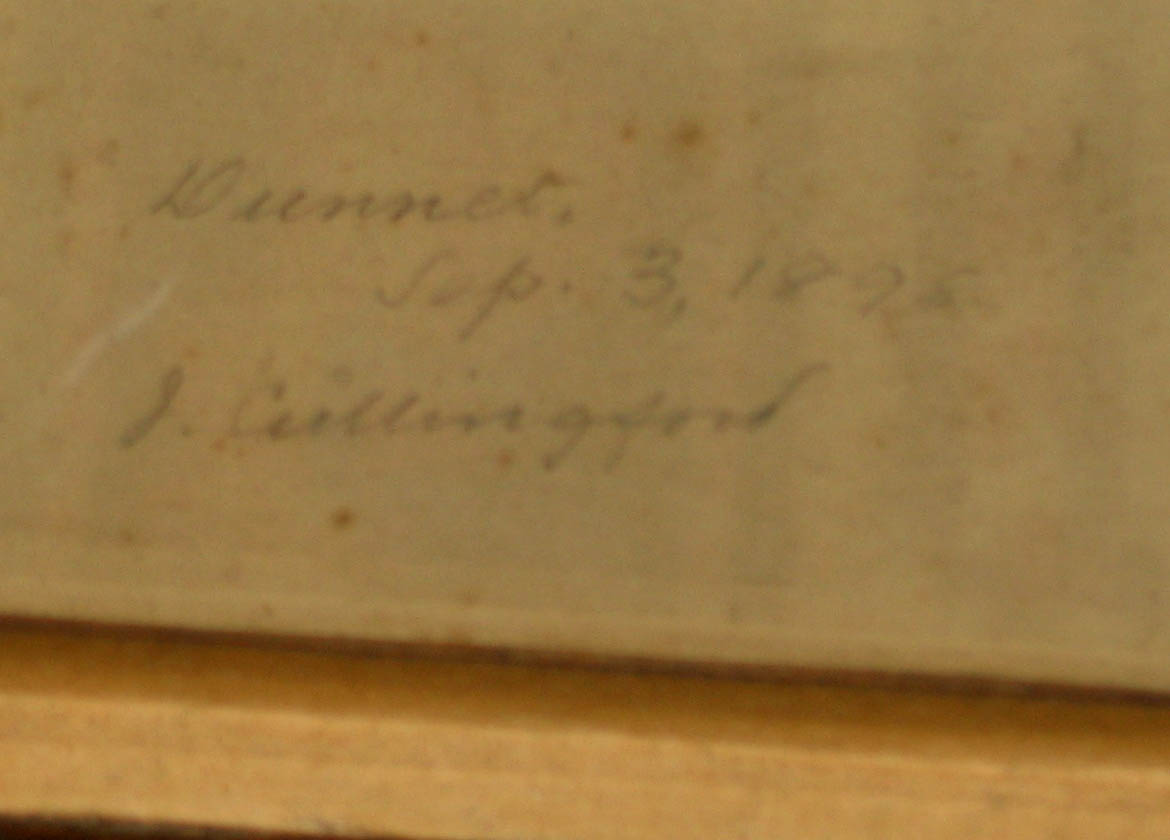 Dunnet.
Sep. 3, 1895.
J. Cullingford